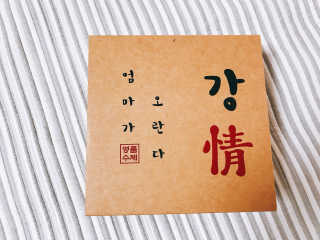 엄마가
오란다
강情
명품
수제